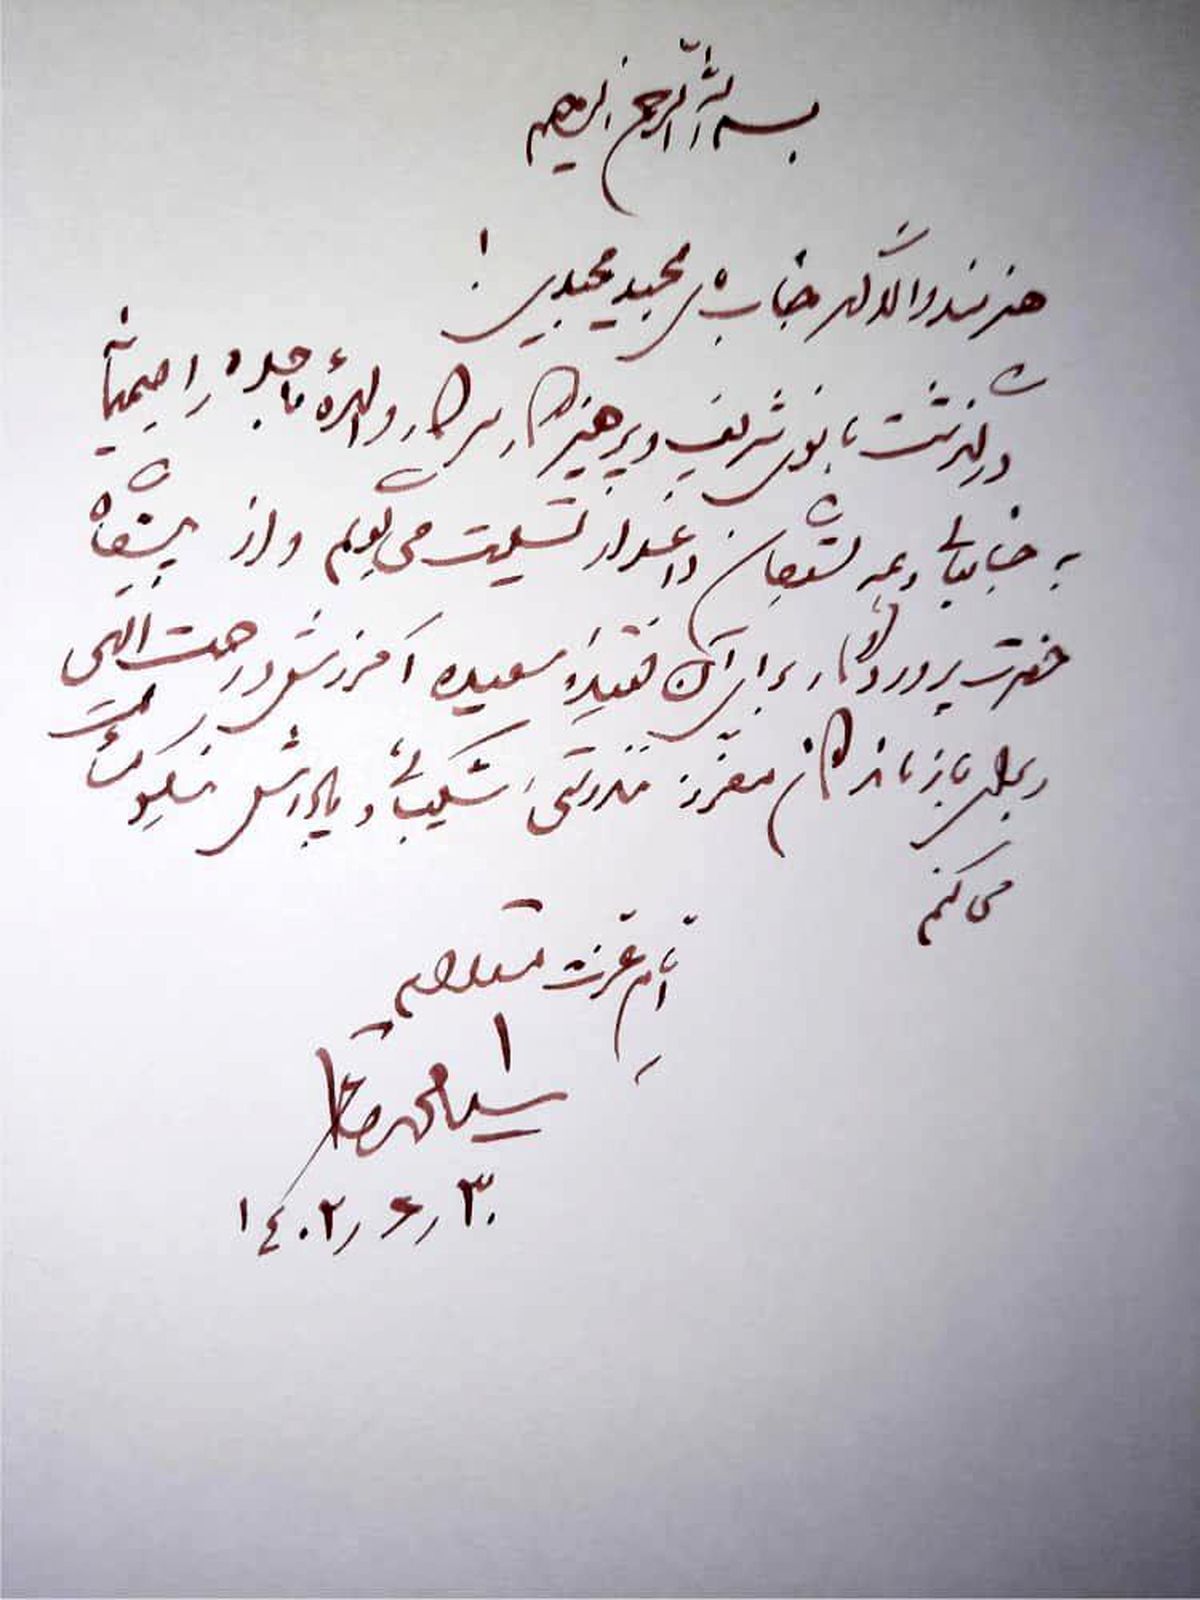 بسم الله الرحمن الرحیم
هنرمند والاگهر جناب آقای مجید مجیدی!
درگذشت بانوی شریف و پرهیزگار سرکار والدهٔ ماجده را صمیمانه
به جنابعالی و همه بستگان داغدار تسلیت می‌گویم و از پیشگاه
حضرت پروردگار برای آن فقیدهٔ سعیده آمرزش و رحمت الهی
و برای بازماندگان معزز تندرستی، شکیبائی و پاداش نیکو مسئلت
می‌کنم
ایام عزت مستدام
سید محمد خاتمی
۱۴۰۲/۶/۳۰